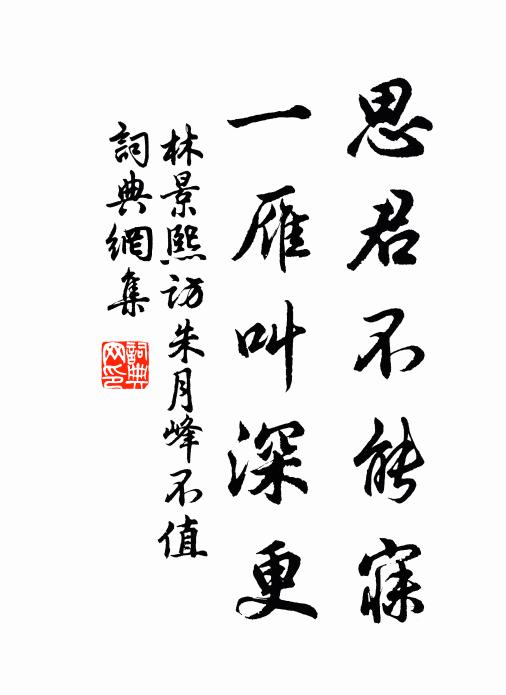 思君不能寐
一雁叫深更
林景熙訪朱月峰不值
詞典網集
詞典
网印